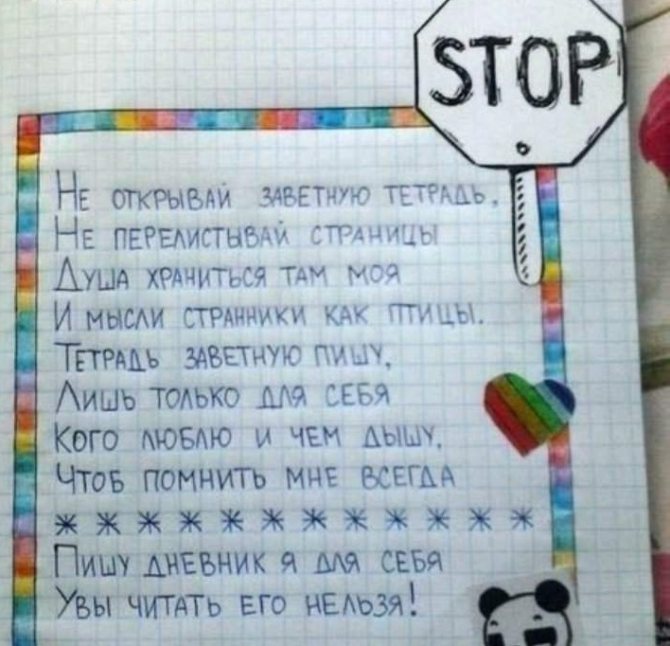 STOP
НЕ ОТКРЫВАЙ ЗАВЕТНУЮ ТЕТРАДЬ,
НЕ ПЕРЕЛИСТЫВАЙ СТРАНИЦЫ
ДУША ХРАНИТЬСЯ ТАМ МОЯ
И МЫСЛИ СТРАННИКИ КАК ПТИЦЫ.
ТЕТРАДЬ ЗАВЕТНУЮ ПИШУ,
ЛИШЬ ТОЛЬКО ДЛЯ СЕБЯ
КОГО ЛЮБЛЮ И ЧЕМ ДЫШУ,
ЧТОБ ПОМНИТЬ МНЕ ВСЕГДА
* * * * * * * * * * * *
ПИШУ ДНЕВНИК Я ДЛЯ СЕБЯ
УВЫ ЧИТАТЬ ЕГО НЕЛЬЗЯ!